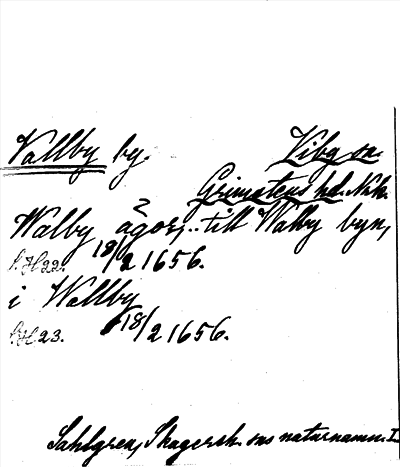 Vallby by. Vibg sn.
Grimstens hd. Nrk.
Walby ägor, .. till Walby byn,
18/2 1656.
i Wallby
18/2 1656.
Sahlgren, Skagersh. sns naturnamn. I.